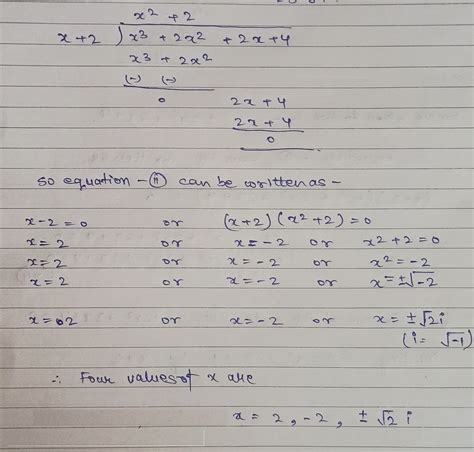 x² + 2
x+2 ) x³ + 2x² + 2x+4
x³ + 2x²
(-) (-)
0 2x+4
2x+4
0
so equation - (ii) can be written as -
x-2=0 or (x+2)(x²+2)=0
x=2 or x=-2 or x²+2=0
x=2 or x=-2 or x²=-2
x=2 or x=-2 or x=±√-2
x=2 or x=-2 or x=±√2i
(i=√-1)
∴ Four values of x are
x = 2, -2, ±√2 i